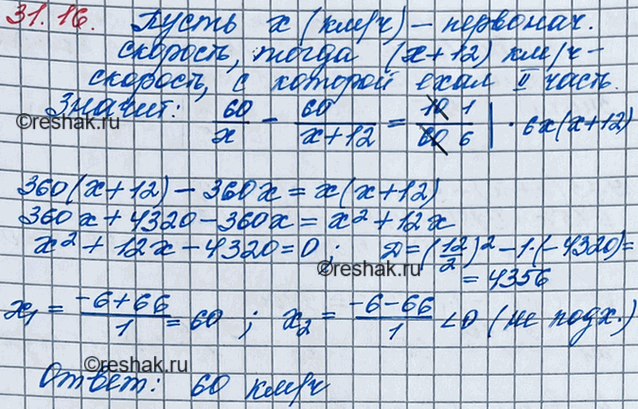 31.16. Пусть x (км/ч) – первонач.
скорость, тогда (x+12) км/ч –
скорость, с которой ехал II часть.
Значит: 60/x – 60/(x+12) = 10/60 1/6 | · 6x(x+12)
©reshak.ru
360(x+12) – 360x = x(x+12)
360x + 4320 – 360x = x² + 12x
x² + 12x – 4320 = 0 ; D = (12/2)² – 1·(–4320) =
= 4356
©reshak.ru
x₁ = (–6+66)/1 = 60 ; x₂ = (–6–66)/1 < 0 (не подх.)
©reshak.ru
Ответ: 60 км/ч